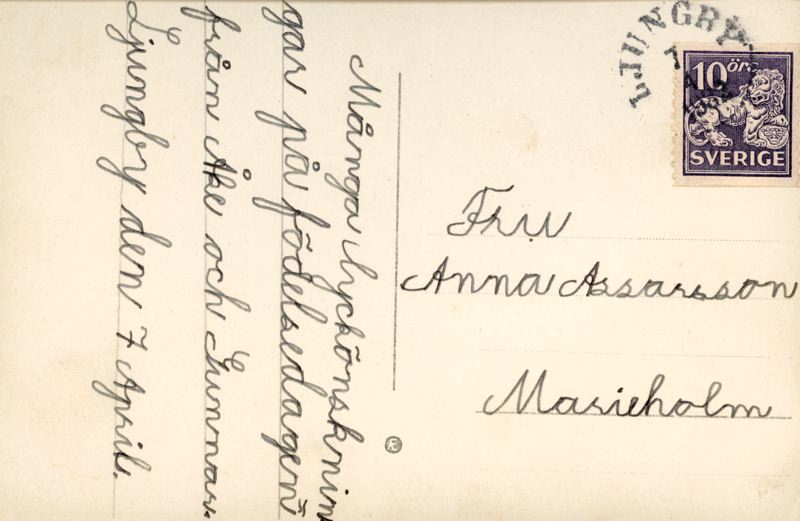 Många lyckönsknin
gar på födelsedagen
från Åke och Gunnar.
Ljungby den 7 April.
LJUNGBY
10 öre
SVERIGE
Fru
Anna Assarsson
Marieholm